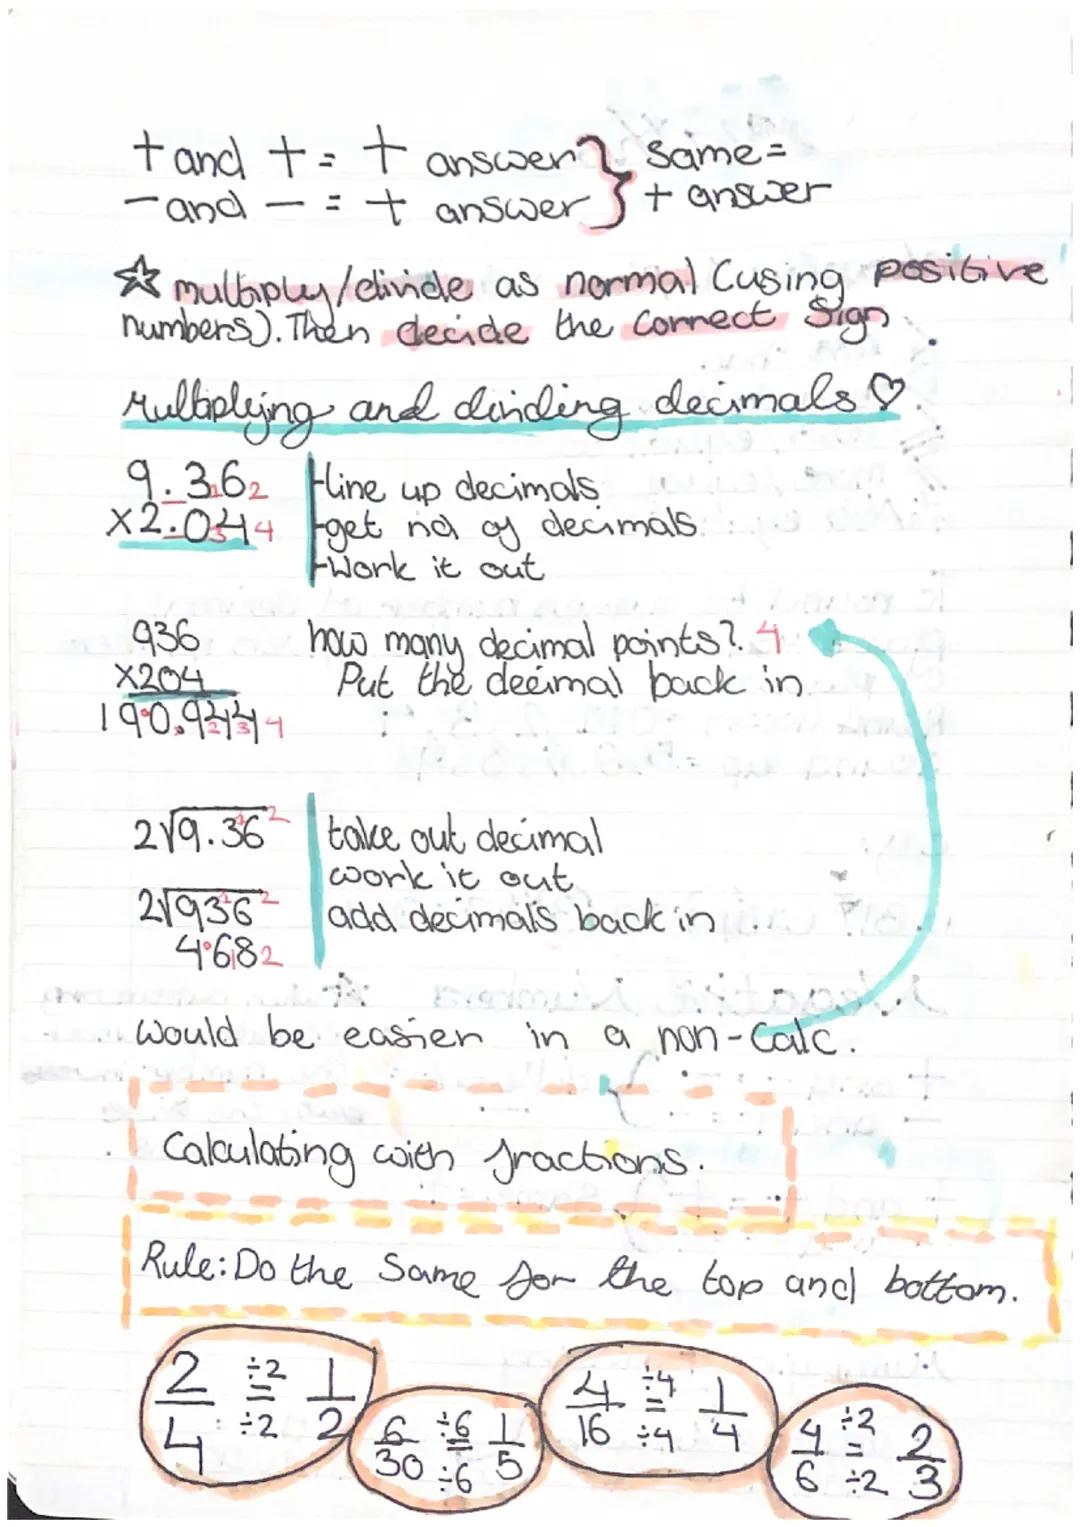 + and + = + answer } same =
- and - = + answer } + answer
☆ multiply/divide as normal (using positive
numbers). Then decide the correct sign.
Multiplying and dividing decimals ♡.
9.36 2
x2.04 4
-line up decimals
-get rid of decimals
-Work it out
936
x204
190.944 4
how many decimal points? 4
Put the decimal back in
2√9.36 2
take out decimal
work it out
add decimals back in
2√936 2
4.68 2
Would be easier in a non-calc.
Calculating with fractions.
Rule: Do the same for the top and bottom.
2/4 ÷2 = ÷2 1/2
6/30 ÷6 = ÷6 1/5
4/16 ÷4 = ÷4 1/4
4/6 ÷2 = ÷2 2/3